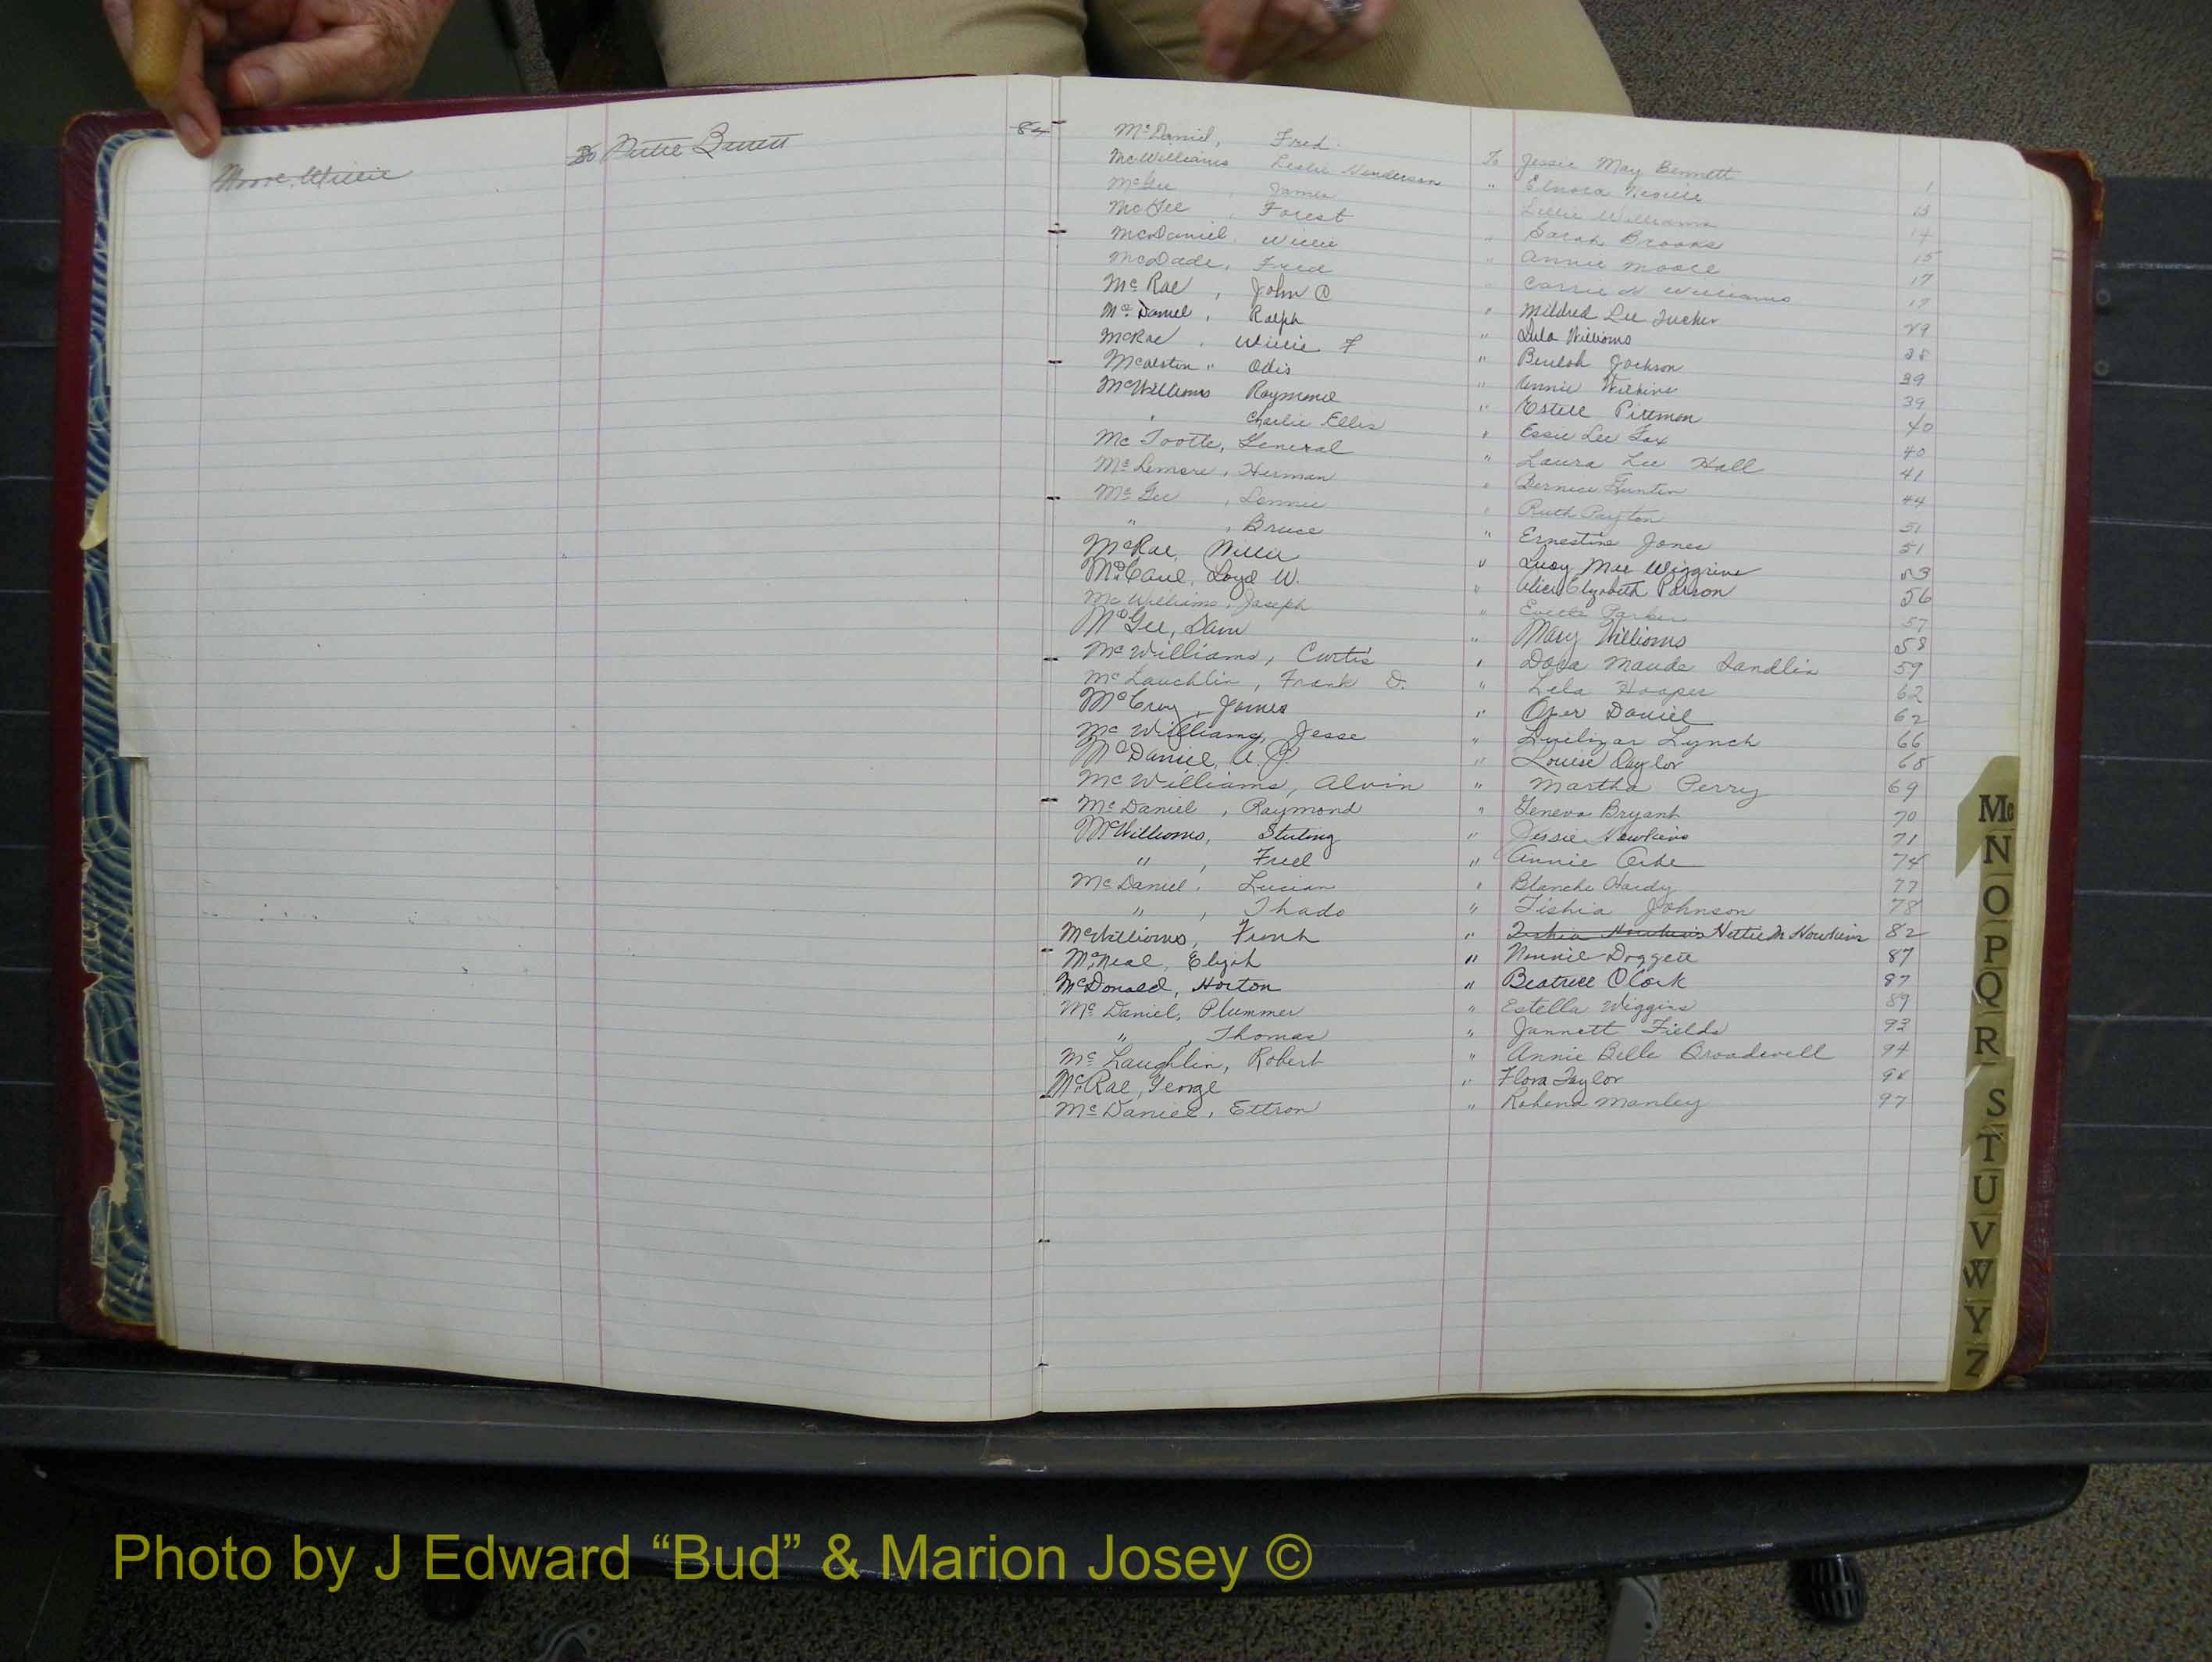 Moore, Willie To Butte Barrett 84
McDaniel, Fred To Jessie May Bennett 1
McWilliams Leslie Henderson " Elnora Neville 13
McGee , James " Lillie Williams 14
McGee , Forest Sarah Brooks 15
McDaniel, Willie " Annie Moore 17
McDade, Fred " Carrie H Williams 17
McRae , John C " Mildred Lee Tucker 29
McDaniel , Ralph " Lula Williams 38
McRae , Willie F " Beulah Jackson 39
McAlston " Odis " Annie Wilkins 39
McWilliams Raymond " Estell Pittman 40
" Charlie Ellis " Essie Lee Fox 40
McTootle, General " Laura Lee Hall 41
McLemore, Herman " Bernice Gunter 44
McGee , Lonnie " Ruth Payton 51
" , Bruce " Ernestine Jones 51
McRae, Willie " Lucy Mae Wiggins 53
McCaul, Loyd W. " Alice Elizabeth Parson 56
McWilliams, Joseph " Parker 57
McGee, Sam " Mary Williams 58
McWilliams, Curtis " Dora Maude Sandlin 59
McLauchlin, Frank D. " Lela Hooper 62
McCray, James " Oper Daniel 62
McWilliams, Jesse " Luelizar Lynch 66
McDaniel, A. P. " Louise Taylor 68
McWilliams, Alvin " Martha Perry 69
McDaniel , Raymond " Geneva Bryant 70
McWilliams, Sterling " Jessie Newkins 71
" , Fred " Annie 74
McDaniel, Lucian " Blanche Hardy 77
" , Thado " Tishia Johnson 78
McWilliams, Frank " Tishia Hawkins Hettie M Hawkins 82
McNeal, Elijah " Nonnie Doggett 87
McDonald, Horton " Beatrice Clark 87
McDaniel, Plummer " Estella Wiggins 89
" , Thomas " Jannett Fields 93
McLaughlin, Robert " Annie Belle Broadwell 94
McRae, George " Flora Taylor
McDaniel, Ettron " Rohena Manley 97
Mc
N
O
P
Q
R
S
T
U
V
W
Y
Z
Photo by J Edward “Bud” & Marion Josey ©